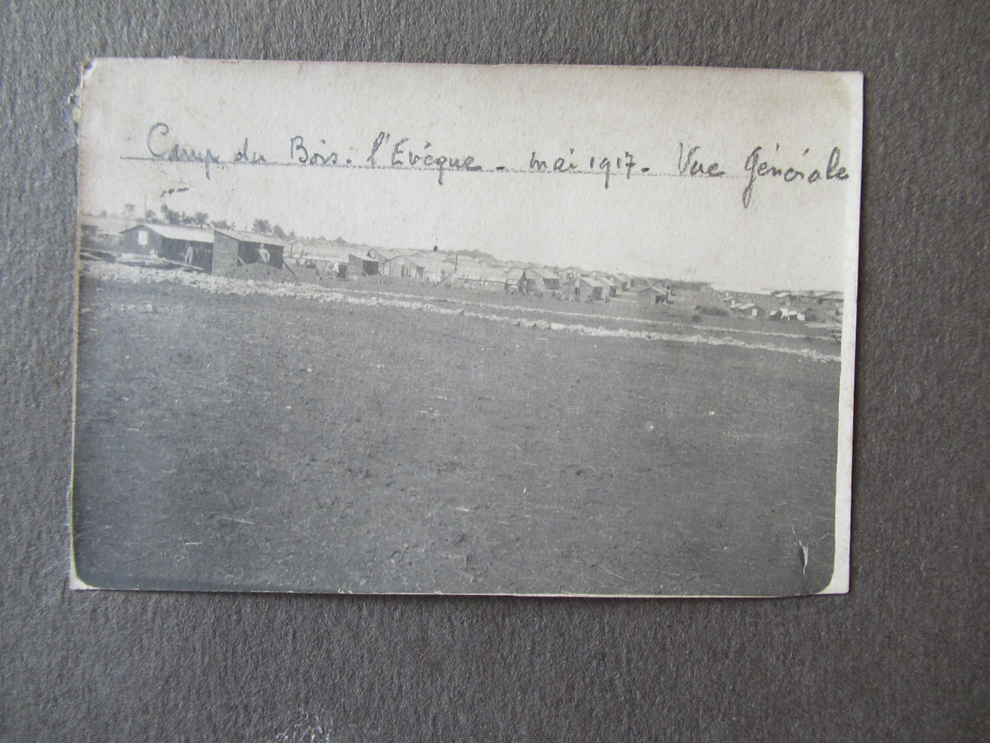 Camp du Bois. l'Evêque - mai 1917 - Vue générale